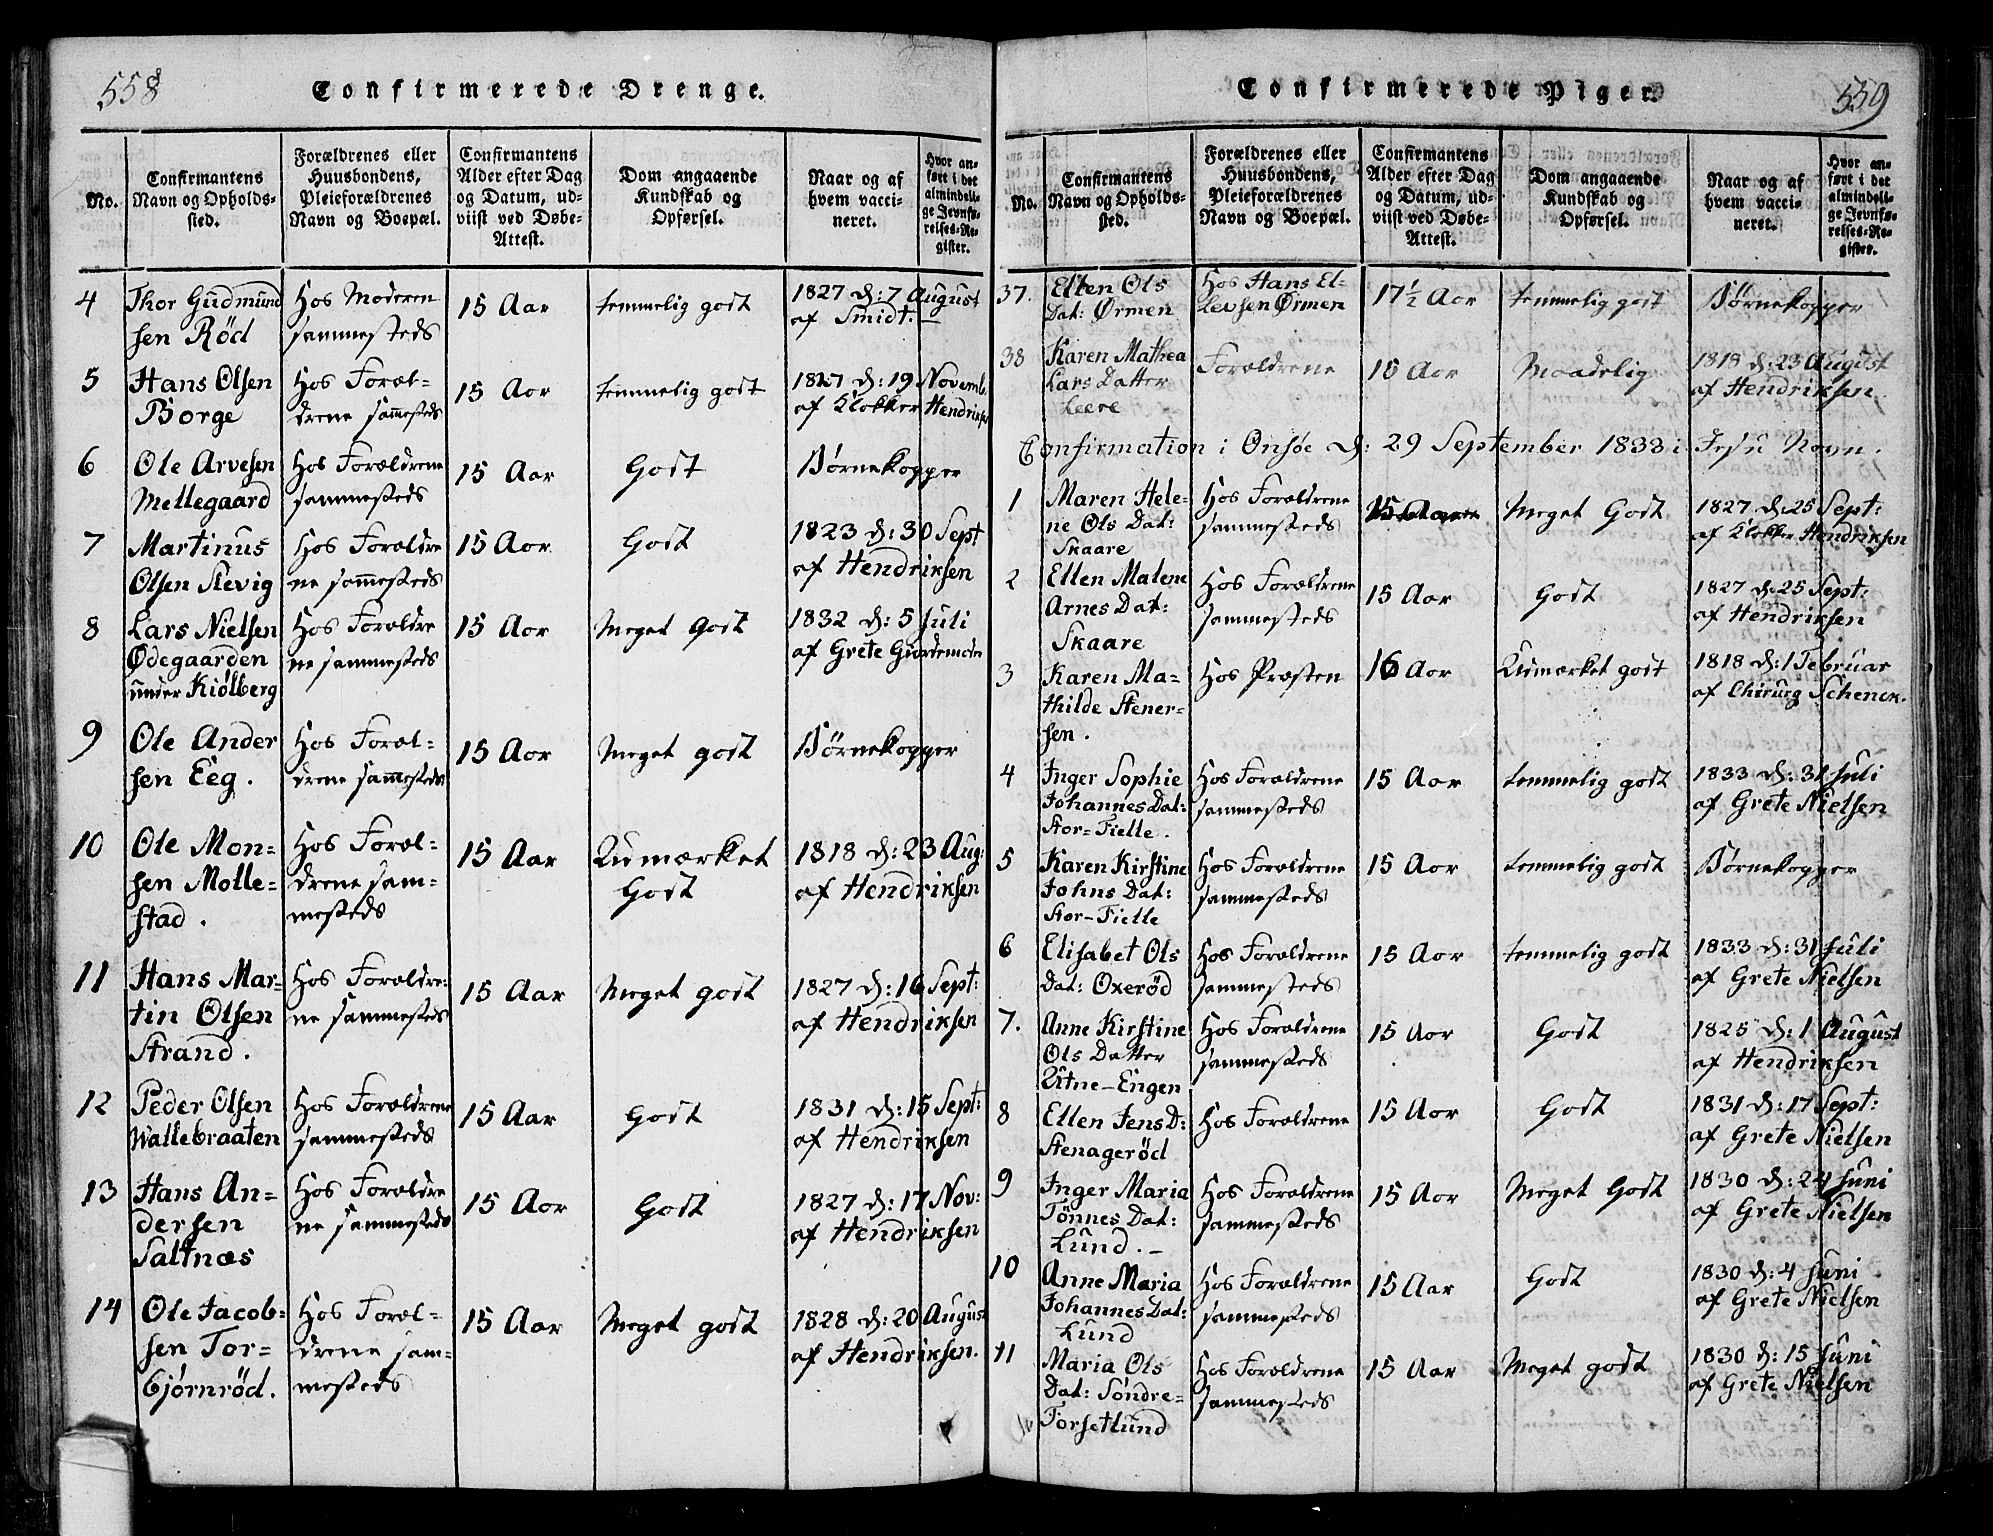 558
Confirmerede Drenge.
No.
Confirmantens
Navn og Opholds-
sted.
Forældrenes eller
Huusbondens,
Pleieforældrenes
Navn og Boepæl.
Confirmantens
Alder efter Dag
og Datum, ud-
viist ved Døbe-
Attest.
Dom angaaende
Kundskab og
Opførsel.
Naar og af
hvem vacci-
neret.
Hvor an-
ført i det
almindeli-
ge Jevnfø-
relses-Re-
gister.
4
Thor Gudmund
sen Röd
Hos Moderen
sammesteds
15 Aar
temmelig godt
1827 d: 7 August
af Smidt.
5
Hans Olsen
Borge
Hos Foræl-
drene sammesteds
15 Aar
temmelig godt
1827 d: 19 Novemb.
af Klokker Hendriksen
6
Ole Arvesen
Mellegaard
Hos Forældrene
sammesteds
15 Aar
Godt
Børnekopper
7
Martinus
Olsen Slevig
Hos Forældre
ne sammesteds
15 Aar
Godt
1823 d: 30 Sept
af Hendriksen
8
Lars Nielsen
Ødegaarden
under Kiølberg
Hos Forældre
ne sammesteds
15 Aar
Meget Godt
1832 d: 5 Juli
af Grete Gurdemoen
9
Ole Ander
sen Eeg.
Hos Foræl-
drene sammesteds
15 Aar
Meget godt
Børnekopper
10
Ole Mon-
sen Molle-
stad.
Hos Foræl-
drene sam-
mesteds
15 Aar
Udmærket
Godt
1818 d: 23 Aug:
af Hendriksen
11
Hans Mar-
tin Olsen
Strand.
Hos Forældre-
ne sammesteds
15 Aar
Meget godt
1827 d: 16 Sept:
af Hendriksen
12
Peder Olsen
Wallebraaten
Hos Forældrene
sammesteds
15 Aar
Godt
1831 d: 15 Sept:
af Hendriksen
13
Hans An-
dersen
Saltnæs
Hos Forældre
ne sammesteds
15 Aar
Godt
1827 d: 17 Nov:
af Hendriksen
14
Ole Jacob-
sen Tor-
bjørnröd.
Hos Foræl-
drene sam-
mesteds
15 Aar
Meget godt
1828 d: 20 August
af Hendriksen.
559
Confirmerede Piger.
No.
Confirmantens
Navn og Opholds-
sted.
Forældrenes eller
Huusbondens,
Pleieforældrenes
Navn og Boepæl.
Confirmantens
Alder efter Dag
og Datum, ud-
viist ved Døbe-
Attest.
Dom angaaende
Kundskab og
Opførsel.
Naar og af
hvem vacci-
neret.
Hvor an-
ført i det
almindeli-
ge Jevnfø-
relses-Re-
gister.
37.
Ellen Ols
Dat: Ørmen
Hos Hans El-
levsen Ørmen
17 1/2 Aar
temmelig godt
Børnekopper
38
Karen Mathea
Lars Datter
Leere
Forældrene
Aar
Maadelig
1818 d: 23 August
af Hendriksen.
Confirmation i Onsøe d: 29 September 1833 i Jesu Navn.
1
Maren Hele-
ne Ols Dat:
Skaare
Hos Forældrene
sammesteds
15 Aar
Meget Godt
1827 d: 25 Sept:
af Klokker Hendriksen
2
Ellen Malene
Arnes Dat:
Skaare
Hos Forældrene
sammesteds
15 Aar
Godt
1827 d: 25 Sept:
af Hendriksen
3
Karen Ma-
thilde Stener-
sen.
Hos Præsten
16 Aar
Udmærket godt
1818 d: 1 Februar
af Chirurg Schenck.
4
Inger Sophie
Johannes Dat:
Stor-Fielle.
Hos Forældrene
sammesteds
15 Aar
temmelig godt
1833 d: 31 Juli
af Grete Nielsen
5
Karen Kirstine
Johns Dat:
Stor-Fielle
Hos Forældrene
sammesteds
15 Aar
temmelig godt
Børnekopper
6
Elisabet Ols
Dat: Oxeröd
Hos Forældrene
sammesteds
15 Aar
temmelig godt
1833 d: 31 Juli
af Grete Nielsen
7.
Anne Kirstine
Ols Datter
Utne-Engen
Hos Forældrene
sammesteds
15 Aar
Godt
1825 d: 1 August
af Hendriksen
8
Ellen Jens D:
Stenageröd
Hos Forældrene
15 Aar
Godt
1831 d: 17 Sept:
af Grete Nielsen
9
Inger Maria
Tönnes Dat:
Lund.-
Hos Forældrene
sammesteds
15 Aar
Meget Godt
1830 d: 24 Juni
af Grete Nielsen
10
Anne Maria
Johannes Dat:
Lund
Hos Forældrene
sammesteds
15 Aar
Godt
1830 d: 4 Juni
af Grete Nielsen
11
Maria Ols
Dat: Söndre-
Torsetlund
Hos Forældrene
sammesteds
15 Aar
Meget godt
1830 d: 15 Juni
af Grete Nielsen